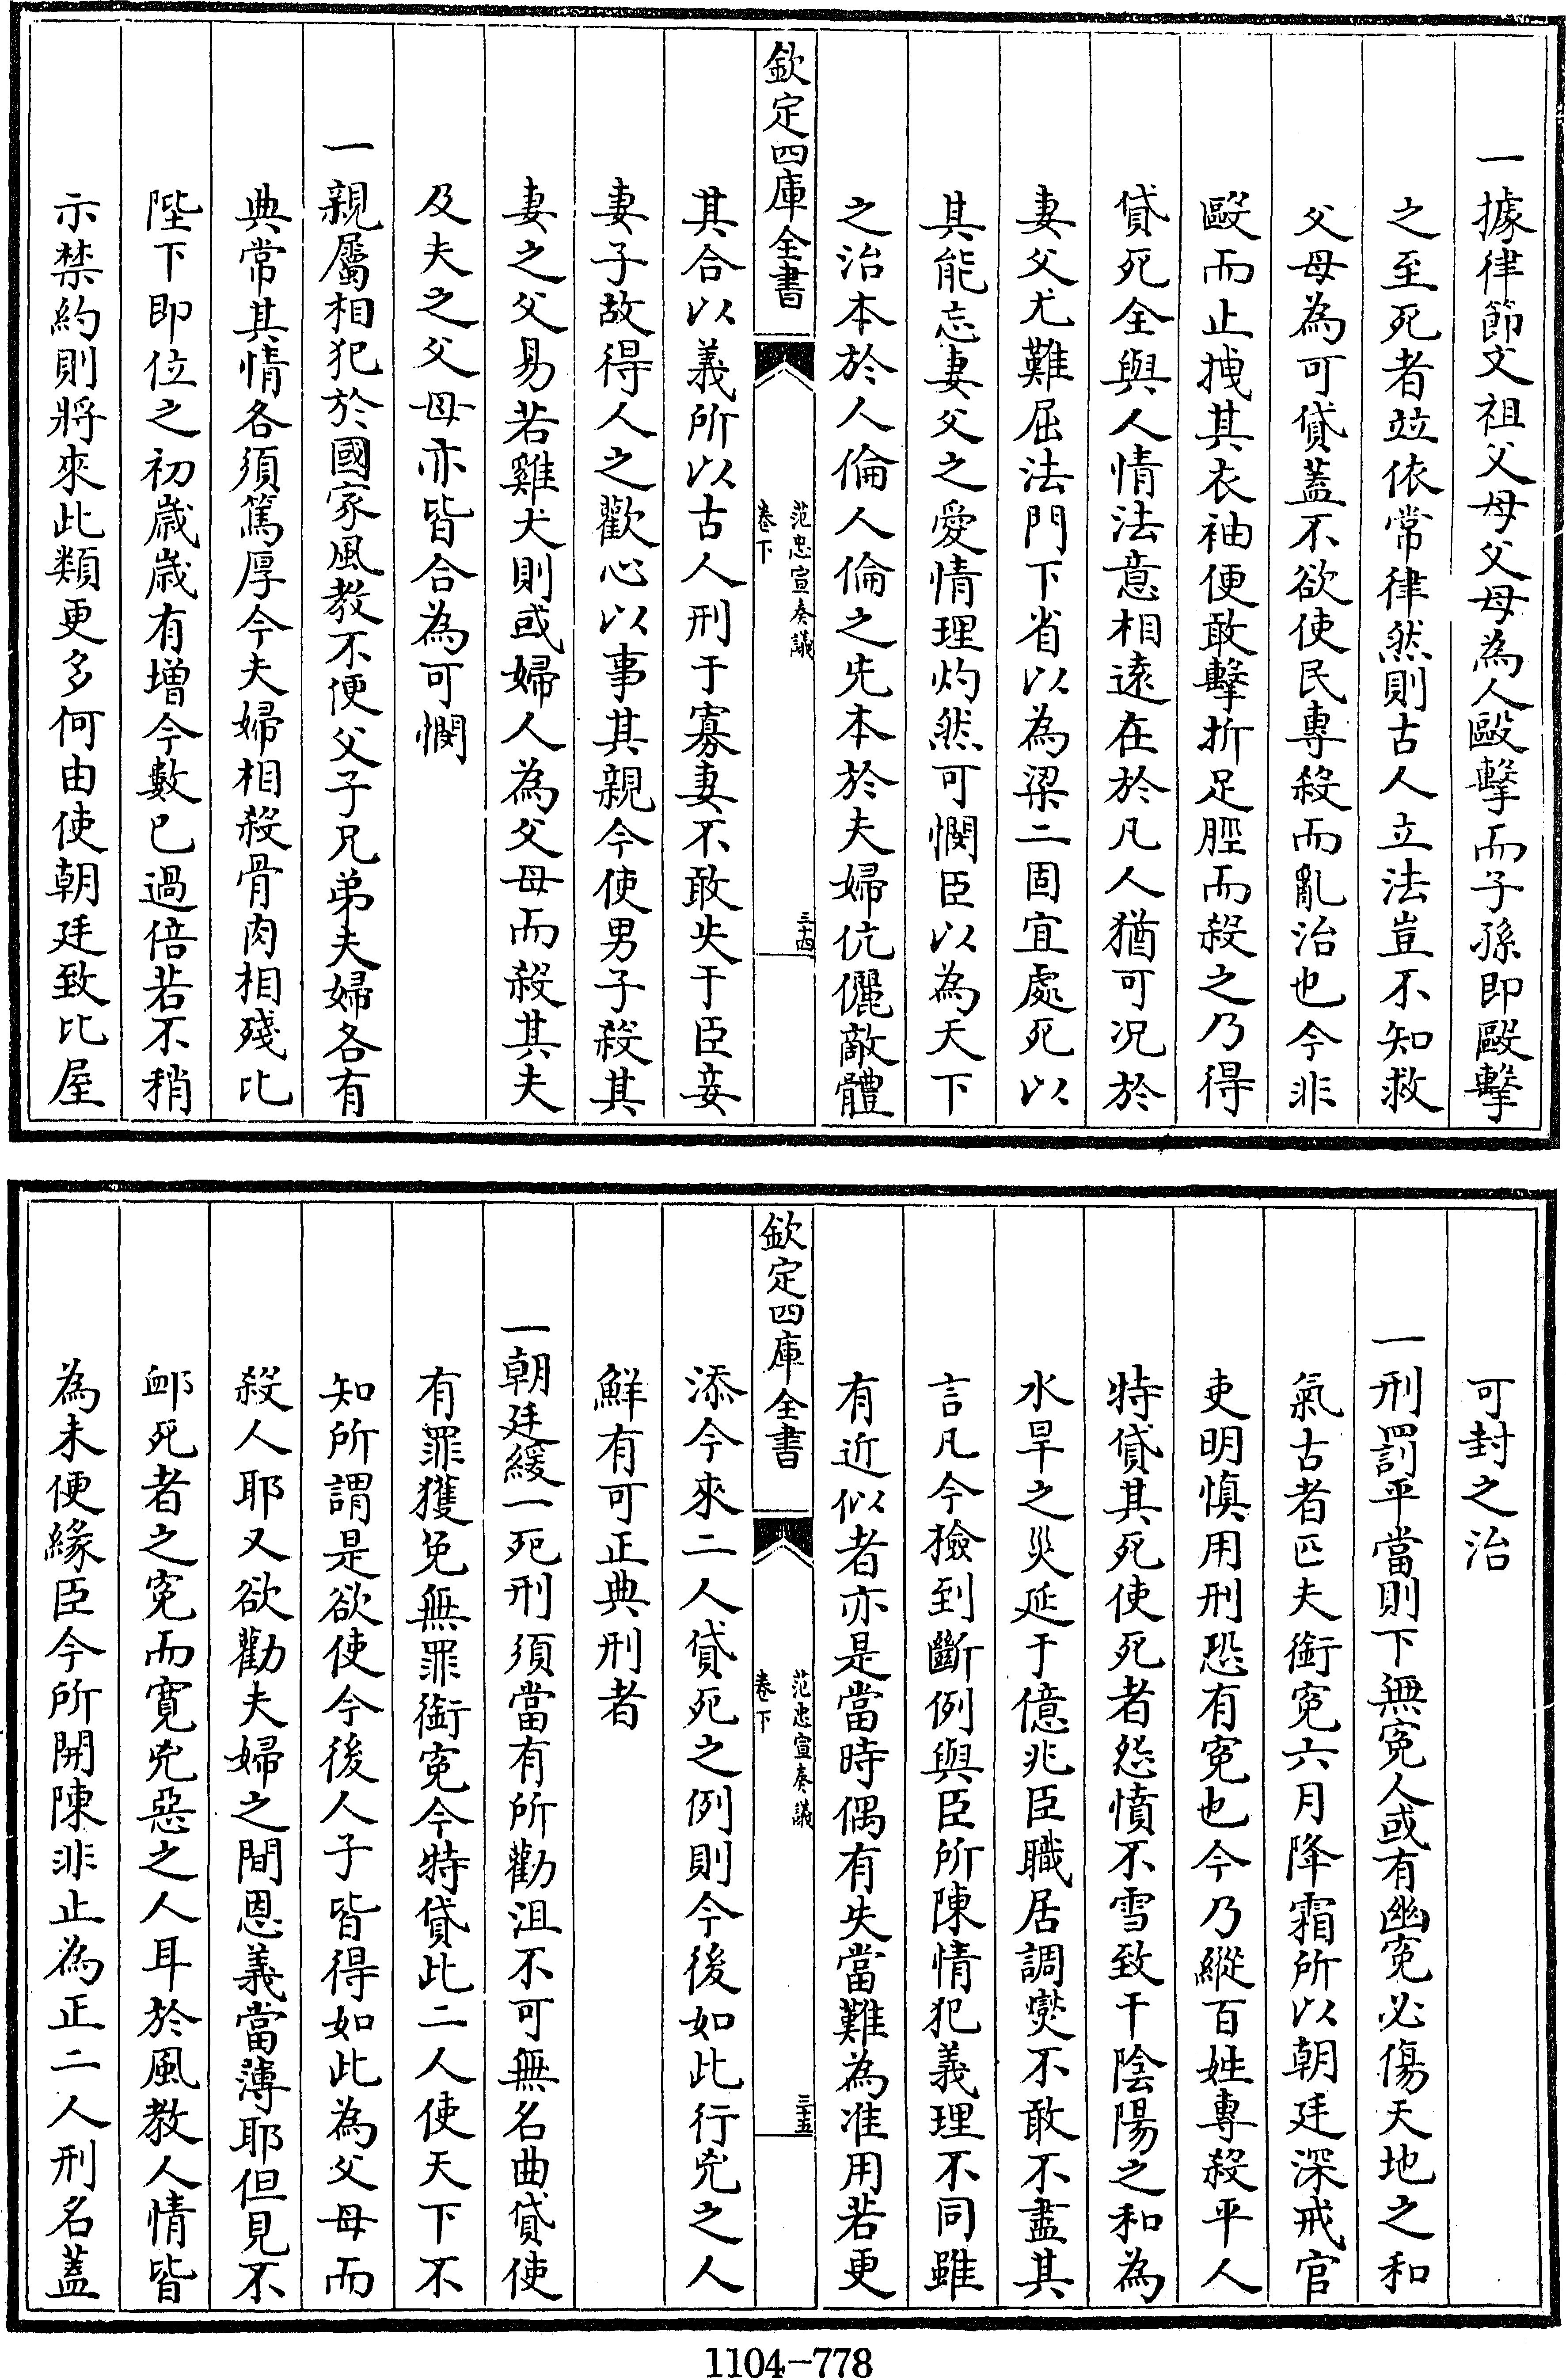 一據律節文祖父母父母為人毆擊而子孫即毆擊
之至死者並依常律然則古人立法豈不知救
父母為可貸蓋不欲使民專殺而亂治也今非
毆而止拽其衣袖便敢擊折足脛而殺之乃得
貸死全與人情法意相遠在於凡人猶可況於
妻父尤難屈法門下省以為梁二固宜處死以
其能忘妻父之愛情理灼然可憫臣以為天下
之治本於人倫人倫之先本於夫婦伉儷敵體
欽定四庫全書
范忠宣奏議
卷下
三十四
其合以義所以古人刑于寡妻不敢失于臣妾
妻子故得人之歡心以事其親今使男子殺其
妻之父易若雞犬則或婦人為父母而殺其夫
及夫之父母亦皆合為可憫
一親屬相犯於國家風教不便父子兄弟夫婦各有
典常其情各須篤厚今夫婦相殺骨肉相殘比
陛下即位之初歲歲有增今數已過倍若不稍
示禁約則將來此類更多何由使朝廷致比屋
可封之治
一刑罰平當則下無冤人或有幽冤必傷天地之和
氣古者匹夫銜冤六月降霜所以朝廷深戒官
吏明慎用刑恐有冤也今乃縱百姓專殺平人
特貸其死使死者怨憤不雪致干陰陽之和為
水旱之災延于億兆臣職居調燮不敢不盡其
言凡今撿到斷例與臣所陳情犯義理不同雖
有近似者亦是當時偶有失當難為准用若更
欽定四庫全書
范忠宣奏議
卷下
三十五
添今來二人貸死之例則今後如此行兇之人
鮮有可正典刑者
一朝廷緩一死刑須當有所勸沮不可無名曲貸使
有罪獲免無罪銜冤今特貸此二人使天下不
知所謂是欲使今後人子皆得如此為父母而
殺人耶又欲勸夫婦之間恩義當薄耶但見不
卹死者之冤而寬兇惡之人耳於風教人情皆
為未便緣臣今所開陳非止為正二人刑名蓋
1104-778